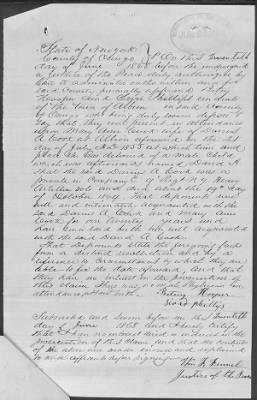 State of New York
County of Oswego } On this Twentieth
day of June 1868 before the undersigned
a Justice of the Peace duly authorized by
law to administer oaths within and for
said County personally appeared Betsey
Hooper and Phillips residents
of the Town of Albion in said County
of Oswego who being duly sworn depose &
say that they were in attendance
upon Mary Ann Cook wife of Daniel
A Cook at Albion aforesaid on the 21
day of July AD 1853 at which time and
place she was delivered of a male child
which was afterwards named David A
that the said Daniel A Cook was a
private in Company 9th Regt N Y Heavy
Artillery vols and died about the 19th day
of October 1864 That deponents were
well and intimately acquainted with the
said Daniel A Cook and Mary Ann
Cook for over twenty years and
has been and are still well acquainted
with the said David A Cook
That Deponents state the foregoing facts
from a distinct recollection and by a
reference to circumstances by which they are
able to fix the date aforesaid And that
they have no interest in the prosecution of
this claim There was no Physician in
attendance
Betsey Hooper
Phillips
Subscribed and sworn before me this Twentieth
day of June 1868 And I hereby certify
that I have no interest direct or indirect in the
prosecution of this claim And that the contents
of the above were made known and explained
to said affiants before signing
Wm
Justice of the Peace